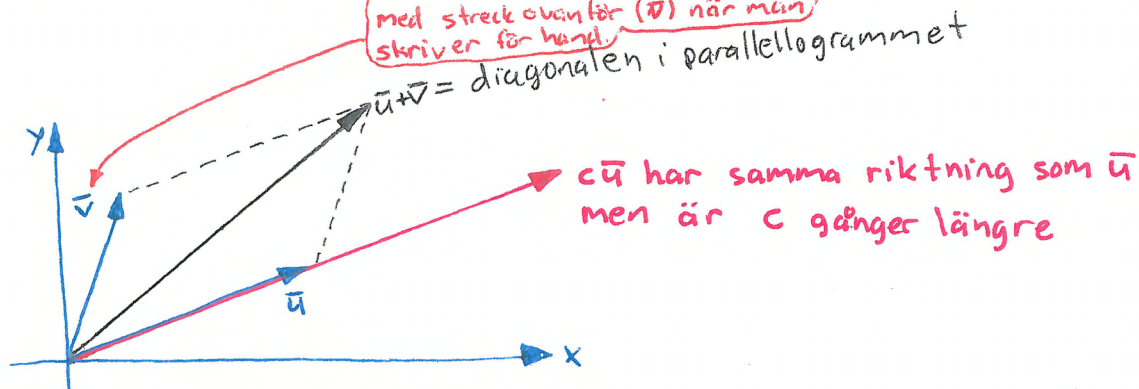 med streck ovanför (v̅) när man
skriver för hand.
u̅+v̅ = diagonalen i parallellogrammet
y
v̅
cu̅ har samma riktning som u̅
men är c gånger längre
u̅
x